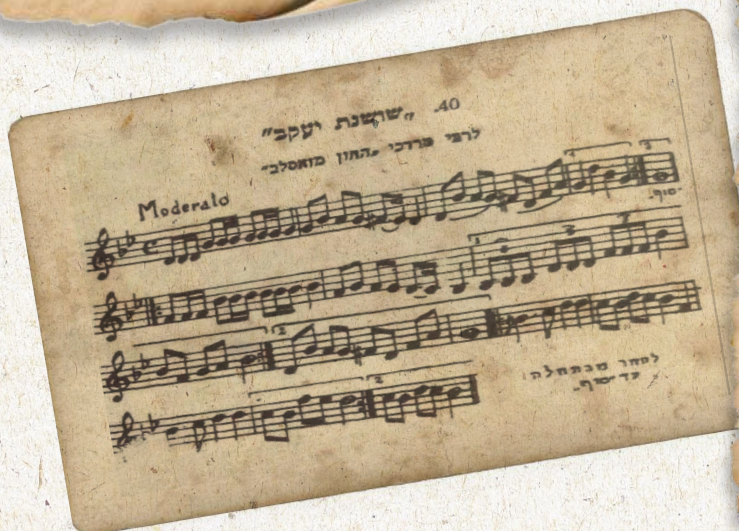 40. „שושנת יעקב"
לרבי מרדכי „החזן מזאסלב"
Moderato
1 2
„סוף"
1 3 3 3
2
לחזור מבתחלה
עד „סוף"
1 2